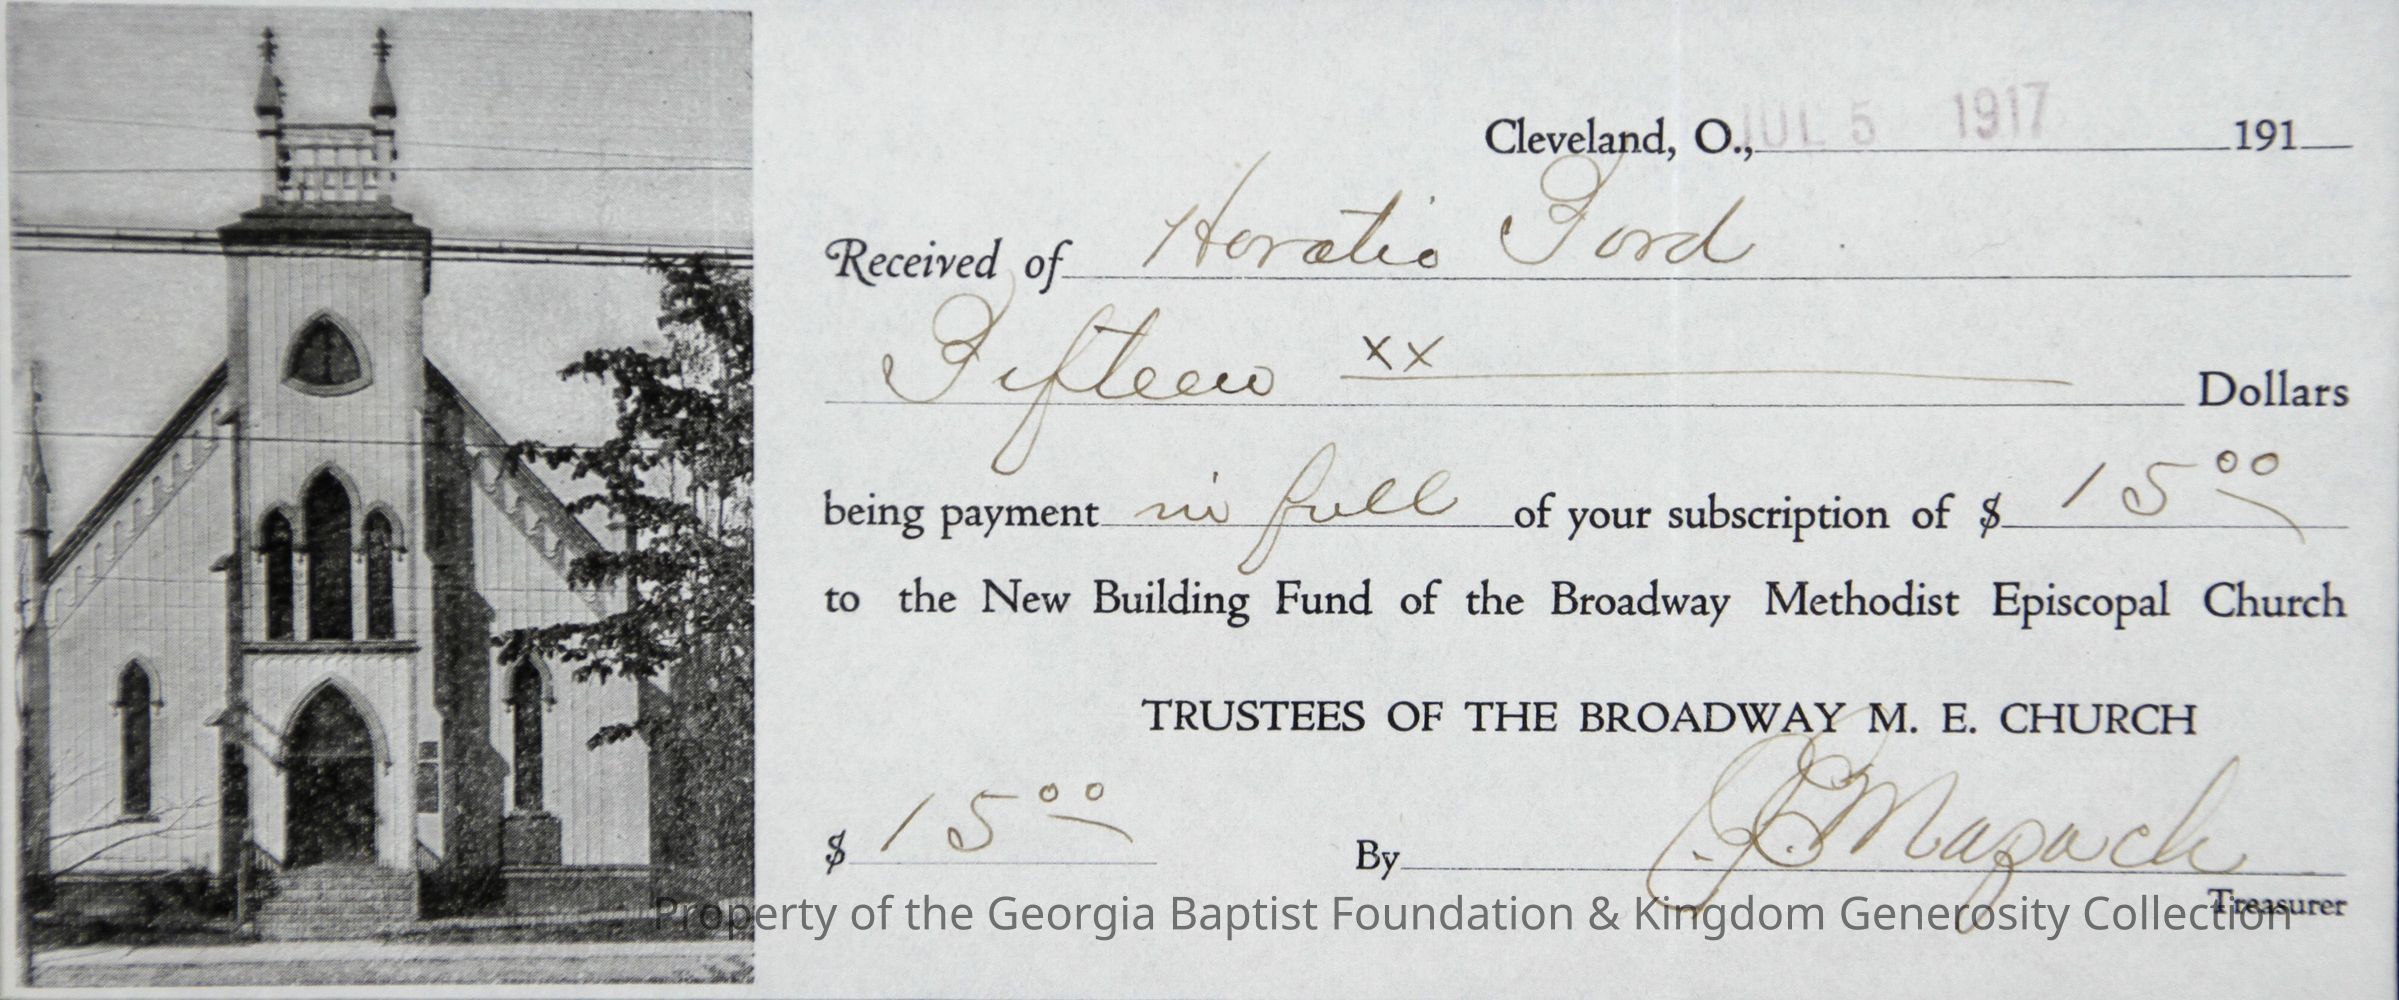 Cleveland, O., JUL 5 1917 191
Received of Horatio Ford
Fifteen xx Dollars
being payment in full of your subscription of $ 15 00
to the New Building Fund of the Broadway Methodist Episcopal Church
TRUSTEES OF THE BROADWAY M. E. CHURCH
$ 15 00 By
Treasurer
Property of the Georgia Baptist Foundation & Kingdom Generosity Collection